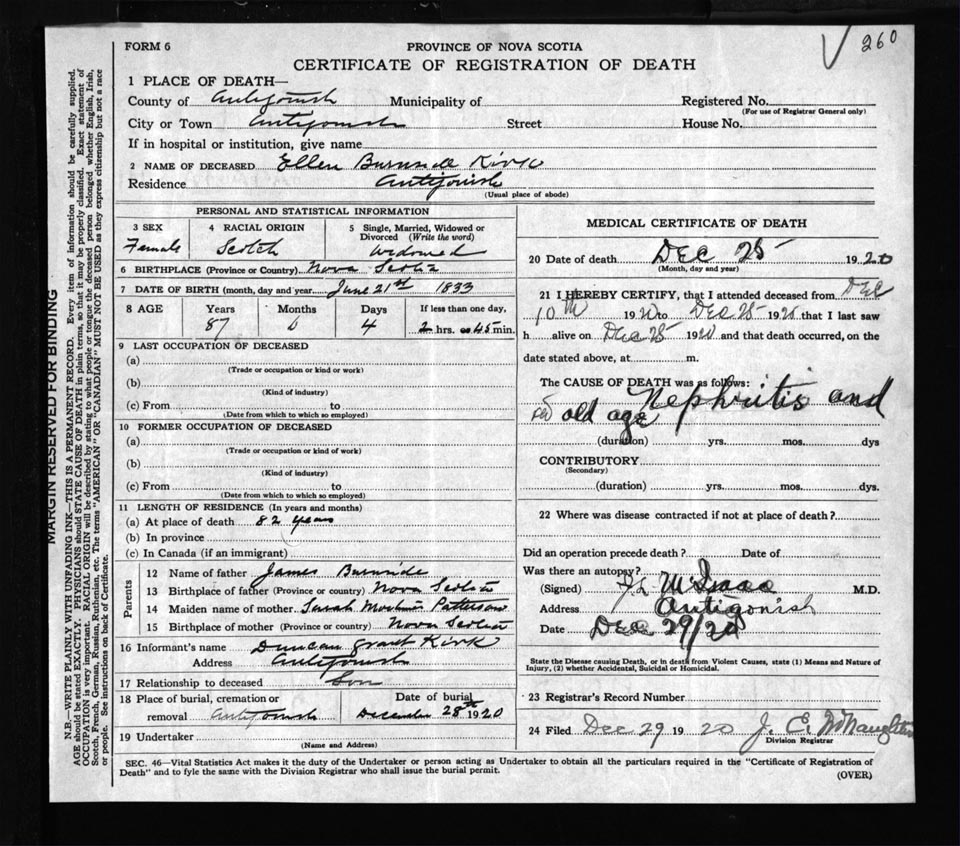 260
FORM 6
PROVINCE OF NOVA SCOTIA
CERTIFICATE OF REGISTRATION OF DEATH
MARGIN RESERVED FOR BINDING
N.B.—WRITE PLAINLY WITH UNFADING INK—THIS IS A PERMANENT RECORD. Every item of information should be carefully supplied.
AGE should be stated EXACTLY. PHYSICIANS should STATE CAUSE OF DEATH in plain terms, so that it may be properly classified. Exact statement of
OCCUPATION is very important. RACIAL ORIGIN will be described by stating to what people or tongue the deceased person belonged whether English, Irish,
Scotch, French, German, Russian, Ruthenian, etc. The terms "AMERICAN" OR "CANADIAN" MUST NOT BE USED as they express citizenship but not a race
or people. See instructions on back of Certificate.
1 PLACE OF DEATH—
County of Antigonish Municipality of Registered No.
(For use of Registrar General only)
City or Town Antigonish Street House No.
If in hospital or institution, give name
2 NAME OF DECEASED Ellen Burnside Kirk
Residence Antigonish
(Usual place of abode)
PERSONAL AND STATISTICAL INFORMATION
3 SEX 4 RACIAL ORIGIN 5 Single, Married, Widowed or
Divorced (Write the word)
Female Scotch Widowed
6 BIRTHPLACE (Province or Country) Nova Scotia
7 DATE OF BIRTH (month, day and year) June 21st 1833
8 AGE Years Months Days If less than one day,
87 6 4 2 hrs. or 45 min.
9 LAST OCCUPATION OF DECEASED
(a)
(Trade or occupation or kind or work)
(b)
(Kind of industry)
(c) From to
(Date from which to which so employed)
10 FORMER OCCUPATION OF DECEASED
(a)
(Trade or occupation or kind of work)
(b)
(Kind of industry)
(c) From to
(Date from which to which so employed)
11 LENGTH OF RESIDENCE (In years and months)
(a) At place of death 82 years
(b) In province
(c) In Canada (if an immigrant)
Parents
12 Name of father James Burnside
13 Birthplace of father (Province or country) Nova Scotia
14 Maiden name of mother Sarah Patterson
15 Birthplace of mother (Province or country) Nova Scotia
16 Informant's name Duncan Grant Kirk
Address Antigonish
17 Relationship to deceased Son
18 Place of burial, cremation or Date of burial
removal Antigonish December 28th 1920
19 Undertaker
(Name and Address)
MEDICAL CERTIFICATE OF DEATH
20 Date of death Dec 25 1920
(Month, day and year)
21 I HEREBY CERTIFY, that I attended deceased from Dec
10th 1920 to Dec 25 1920 that I last saw
h alive on Dec 25 1920 and that death occurred, on the
date stated above, at m.
The CAUSE OF DEATH was as follows:
Nephritis and
old age
(duration) yrs. mos. dys
CONTRIBUTORY
(Secondary)
(duration) yrs. mos. dys.
22 Where was disease contracted if not at place of death?
Did an operation precede death? Date of
Was there an autopsy?
(Signed) McIsaac M.D.
Address Antigonish
Date Dec 29/20
State the Disease causing Death, or in death from Violent Causes, state (1) Means and Nature of
Injury, (2) whether Accidental, Suicidal or Homicidal.
23 Registrar's Record Number
24 Filed Dec 29 1920 J. E. McNaughton
Division Registrar
SEC. 46—Vital Statistics Act makes it the duty of the Undertaker or person acting as Undertaker to obtain all the particulars required in the "Certificate of Registration of
Death" and to fyle the same with the Division Registrar who shall issue the burial permit.
(OVER)